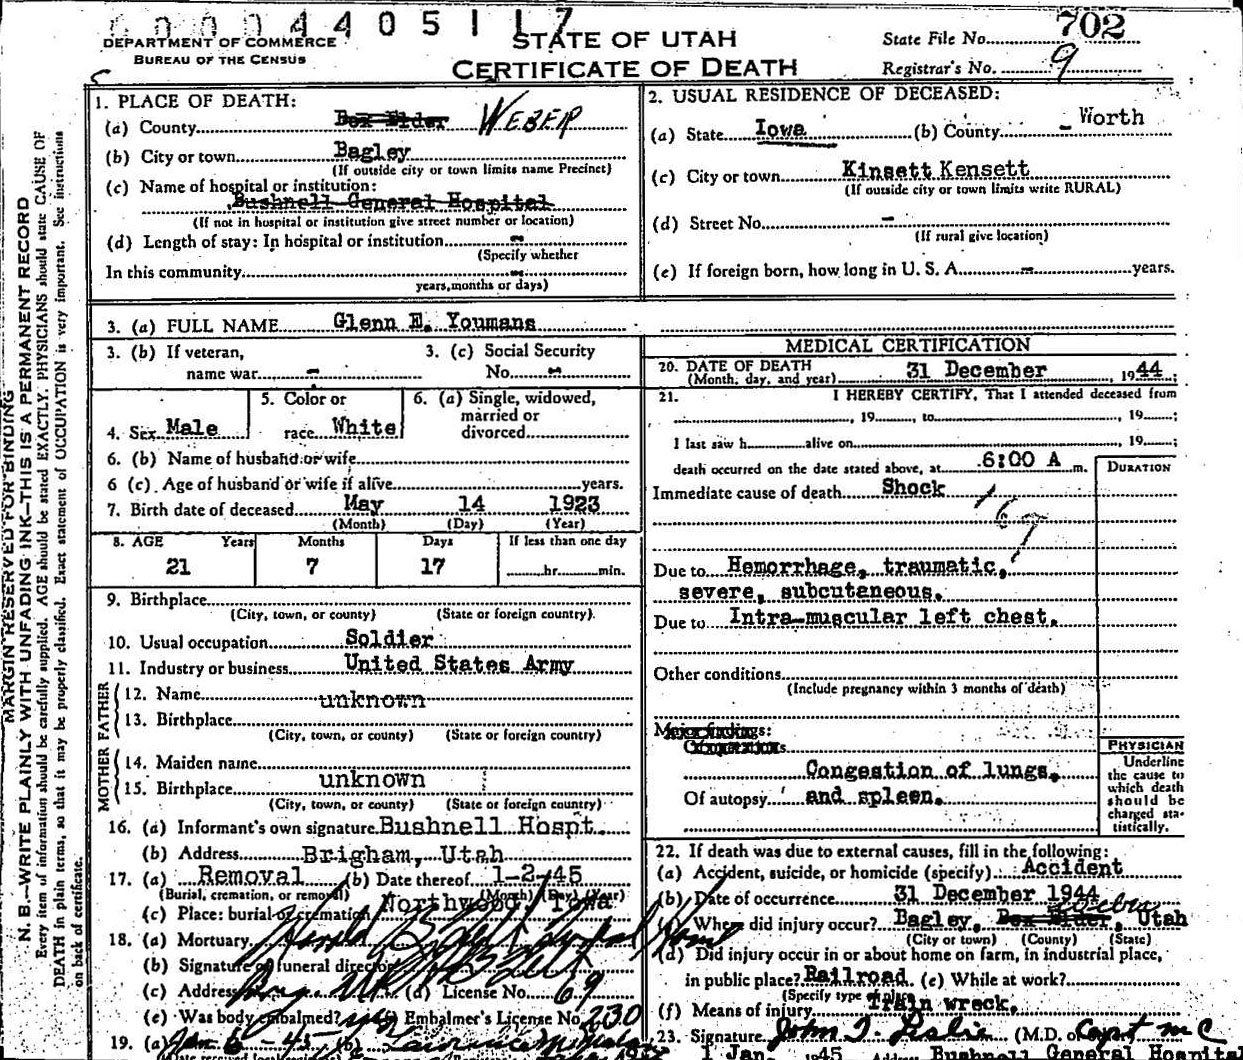 0000 4405117
702
DEPARTMENT OF COMMERCE
BUREAU OF THE CENSUS
STATE OF UTAH
CERTIFICATE OF DEATH
State File No.
Registrar's No. 9
MARGIN RESERVED FOR BINDING
N. B.—WRITE PLAINLY WITH UNFADING INK—THIS IS A PERMANENT RECORD
Every item of information should be carefully supplied. AGE should be stated EXACTLY. PHYSICIANS should state CAUSE OF
DEATH in plain terms, so that it may be properly classified. Exact statement of OCCUPATION is very important. See instructions
on back of certificate.
1. PLACE OF DEATH:
(a) County Box Elder WEBER
(b) City or town Bagley
(If outside city or town limits name Precinct)
(c) Name of hospital or institution:
Bushnell General Hospital
(If not in hospital or institution give street number or location)
(d) Length of stay: In hospital or institution -
(Specify whether
In this community -
years, months or days)
2. USUAL RESIDENCE OF DECEASED:
(a) State Iowa (b) County - Worth
(c) City or town Kinsett Kensett
(If outside city or town limits write RURAL)
(d) Street No. -
(If rural give location)
(e) If foreign born, how long in U. S. A. - years.
3. (a) FULL NAME Glenn E. Youmans
3. (b) If veteran,
name war -
3. (c) Social Security
No. -
4. Sex Male
5. Color or
race White
6. (a) Single, widowed,
married or
divorced
6. (b) Name of husband or wife
6 (c). Age of husband or wife if alive years.
7. Birth date of deceased May 14 1923
(Month) (Day) (Year)
8. AGE Years Months Days If less than one day
21 7 17 hr. min.
9. Birthplace
(City, town, or county) (State or foreign country).
10. Usual occupation Soldier
11. Industry or business United States Army
FATHER
12. Name
unknown
13. Birthplace
(City, town, or county) (State or foreign country)
MOTHER
14. Maiden name
unknown
15. Birthplace
(City, town, or county) (State or foreign country)
16. (a) Informant's own signature Bushnell Hospt.
(b) Address Brigham, Utah
17. (a) Removal (b) Date thereof 1-2-45
(Burial, cremation, or removal) (Month) (Day) (Year)
(c) Place: burial or cremation Northwood Iowa
18. (a) Mortuary
(b) Signature of funeral director
(c) Address (d) License No. 69
(e) Was body embalmed? yes (f) Embalmer's License No. 230
19. (a) Jan 6 - 45 (b)
MEDICAL CERTIFICATION
20. DATE OF DEATH
(Month, day, and year) 31 December 1944
21. I HEREBY CERTIFY, That I attended deceased from
, 19 , to , 19 ;
I last saw h alive on , 19 ;
death occurred on the date stated above, at 6:00 A m.
DURATION
Immediate cause of death Shock
167
Due to Hemorrhage, traumatic,
severe, subcutaneous.
Due to Intra-muscular left chest.
Other conditions
(Include pregnancy within 3 months of death)
Major findings:
Congestion of lungs,
Of autopsy and spleen.
PHYSICIAN
Underline
the cause to
which death
should be
charged sta-
tistically.
22. If death was due to external causes, fill in the following:
(a) Accident, suicide, or homicide (specify) Accident
(b) Date of occurrence 31 December 1944
(c) Where did injury occur? Bagley, Box Elder, Weber Utah
(City or town) (County) (State)
(d) Did injury occur in or about home on farm, in industrial place,
in public place? Railroad (e) While at work?
(Specify type of place
(f) Means of injury Train wreck.
23. Signature John I. Leslie (M.D. or Capt MC
1 Jan. 1945 Address Bushnell General Hospital